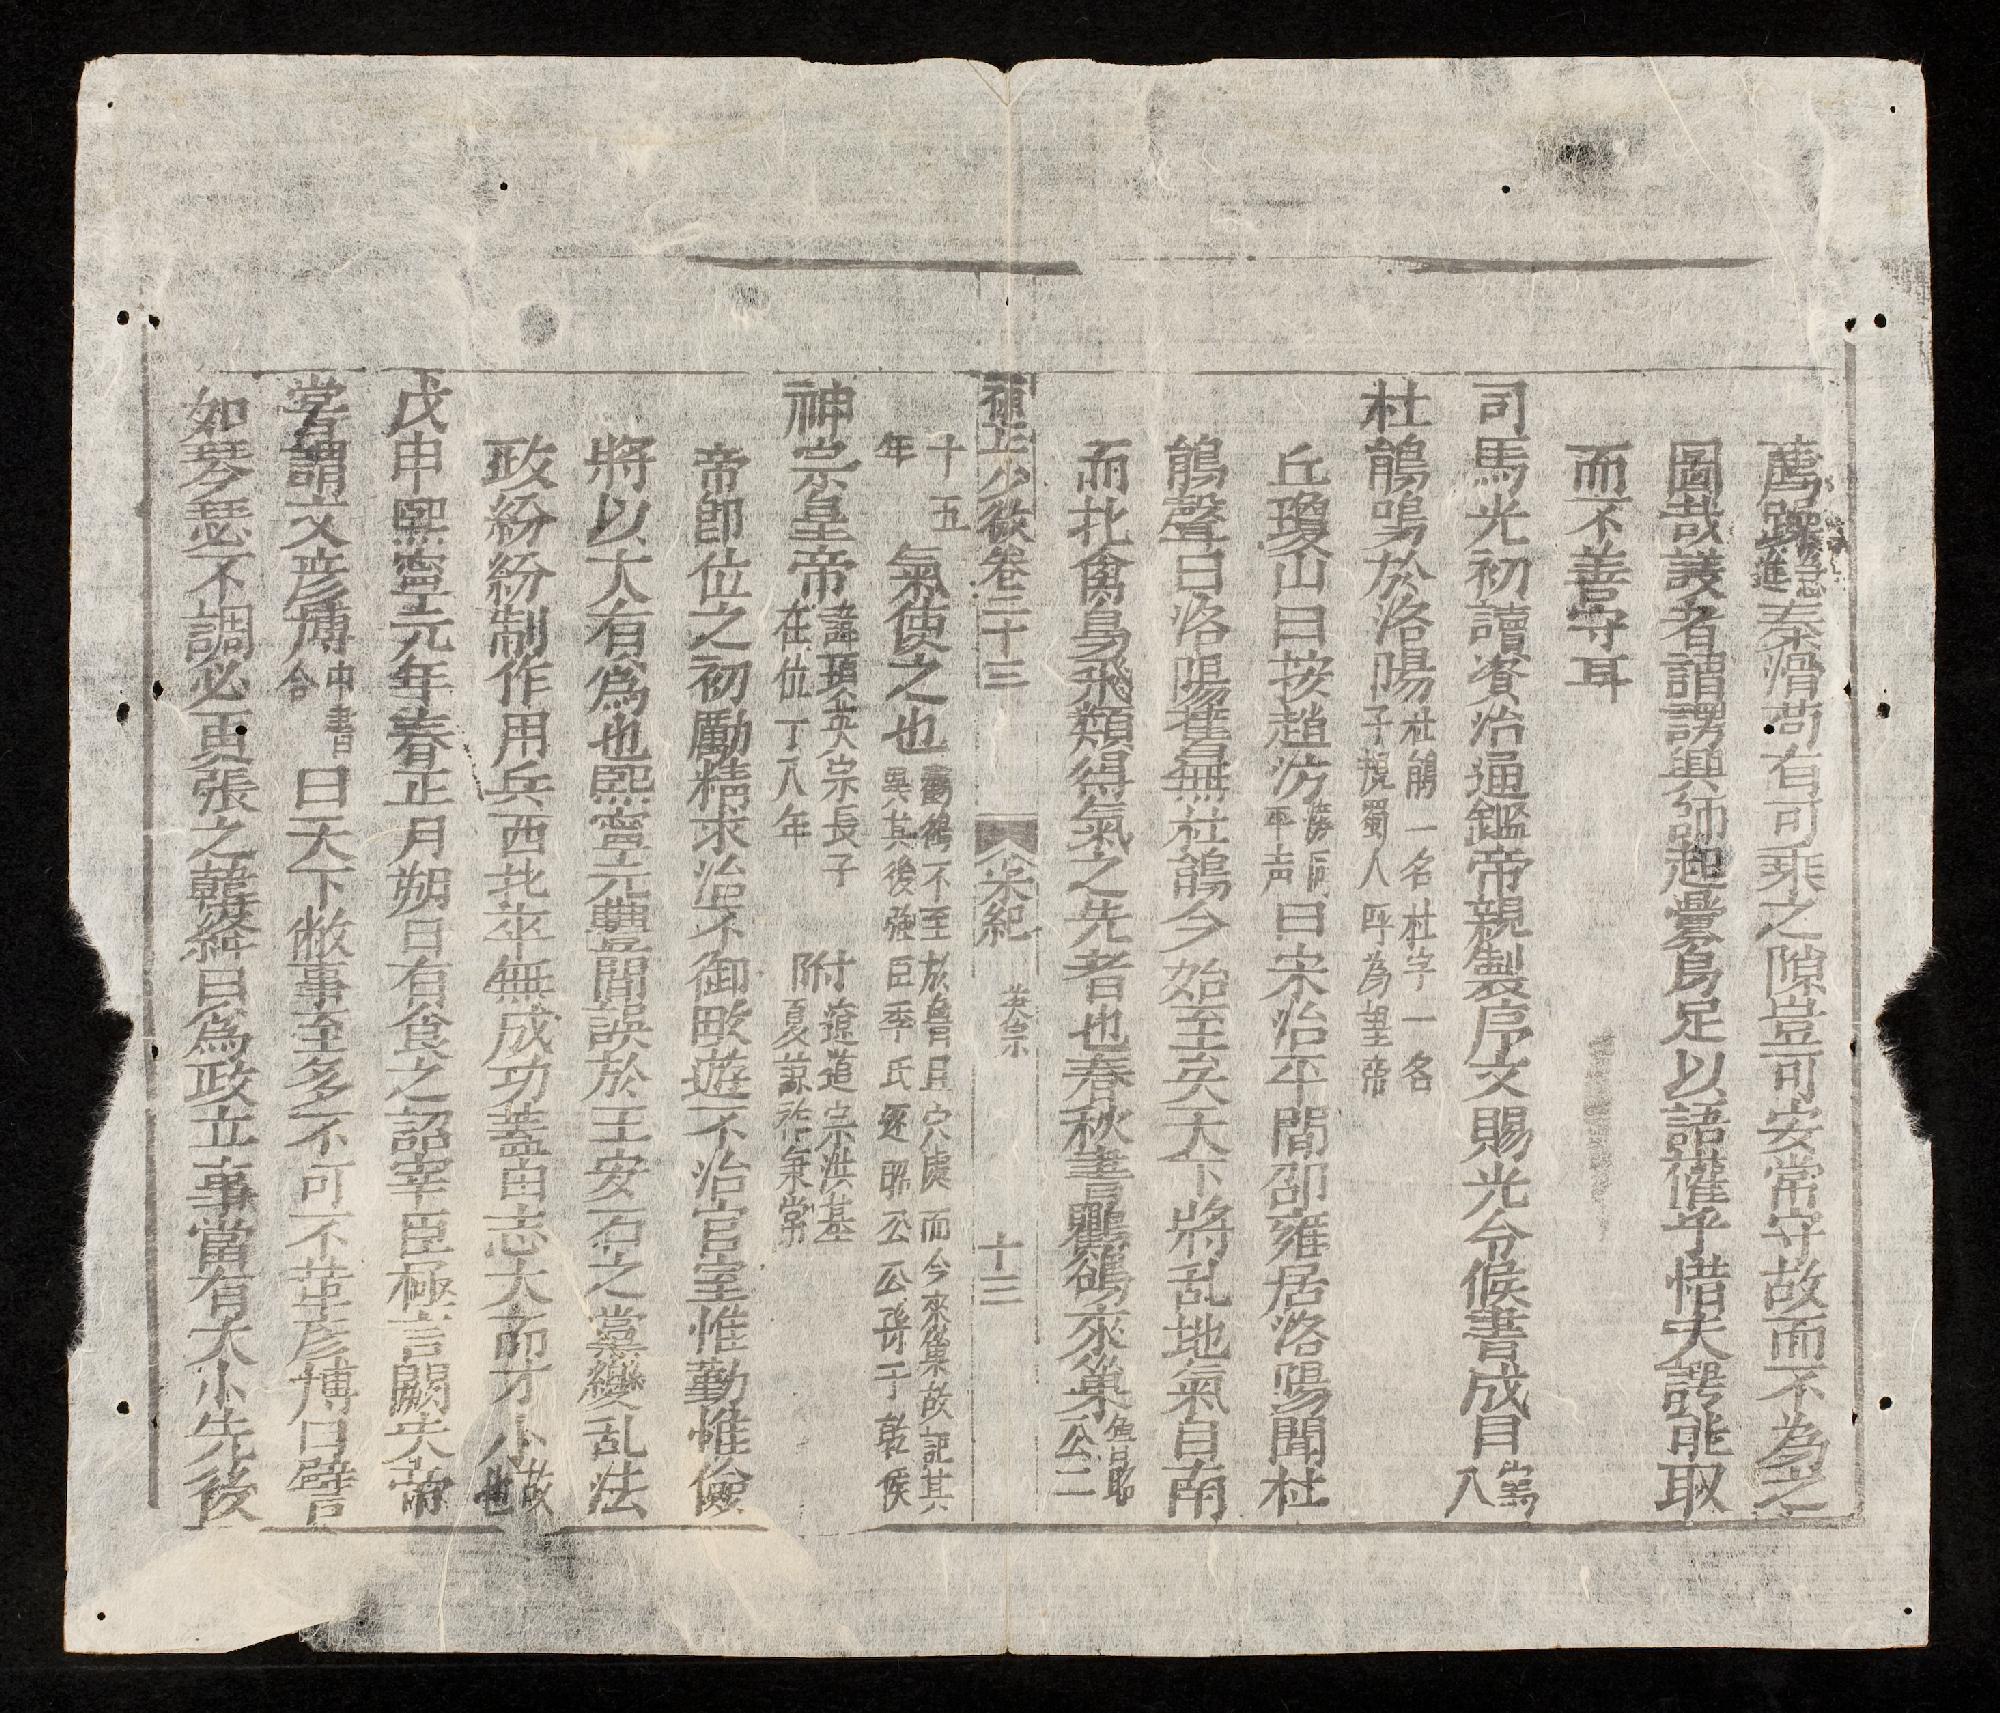 秦滑苟有可乘之隙豈可安常守故而不為之
圖哉議者謂諤興師起釁易足以語權乎惜夫諤能取
而不善守耳
司馬光初讀資治通鑑帝親製序文賜光令候書成日寫入
杜鵑鳴於洛陽杜鵑一名杜宇一名子規蜀人呼為望帝
丘瓊山曰按趙汸滂同平声曰宋治平間邵雍居洛陽聞杜
鵑聲曰洛陽舊無杜鵑今始至矣天下將乱地氣自南
而北禽鳥飛類得氣之先者也春秋書鸜鵒來巢魯昭公二
十五年氣使之也鸜鵒不至於魯且穴處而今來巢故記其異其後強臣季氏逐昭公公孫于乾侯
神宗皇帝諱頊英宗長子在位丁八年 附遼道宗洪基夏諒祚秉常
帝即位之初勵精求治不御畋遊不治宮室惟勤惟儉
將以大有爲也熙寧元豐間誤於王安石之黨變乱法
政紛紛制作用兵西北卒無成功蓋由志大而才小故也
戊申熙寧元年春正月朔日有食之詔宰臣極言闕失帝
嘗謂文彦博中書令曰天下敝事至多不可不革彦博曰譬
如琴瑟不調必更張之韓絳曰爲政立事當有大小先後
卷二十三 宋紀 英宗 十三